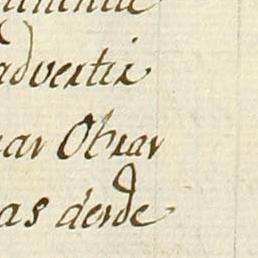 advertir
ar Obrar
as desde